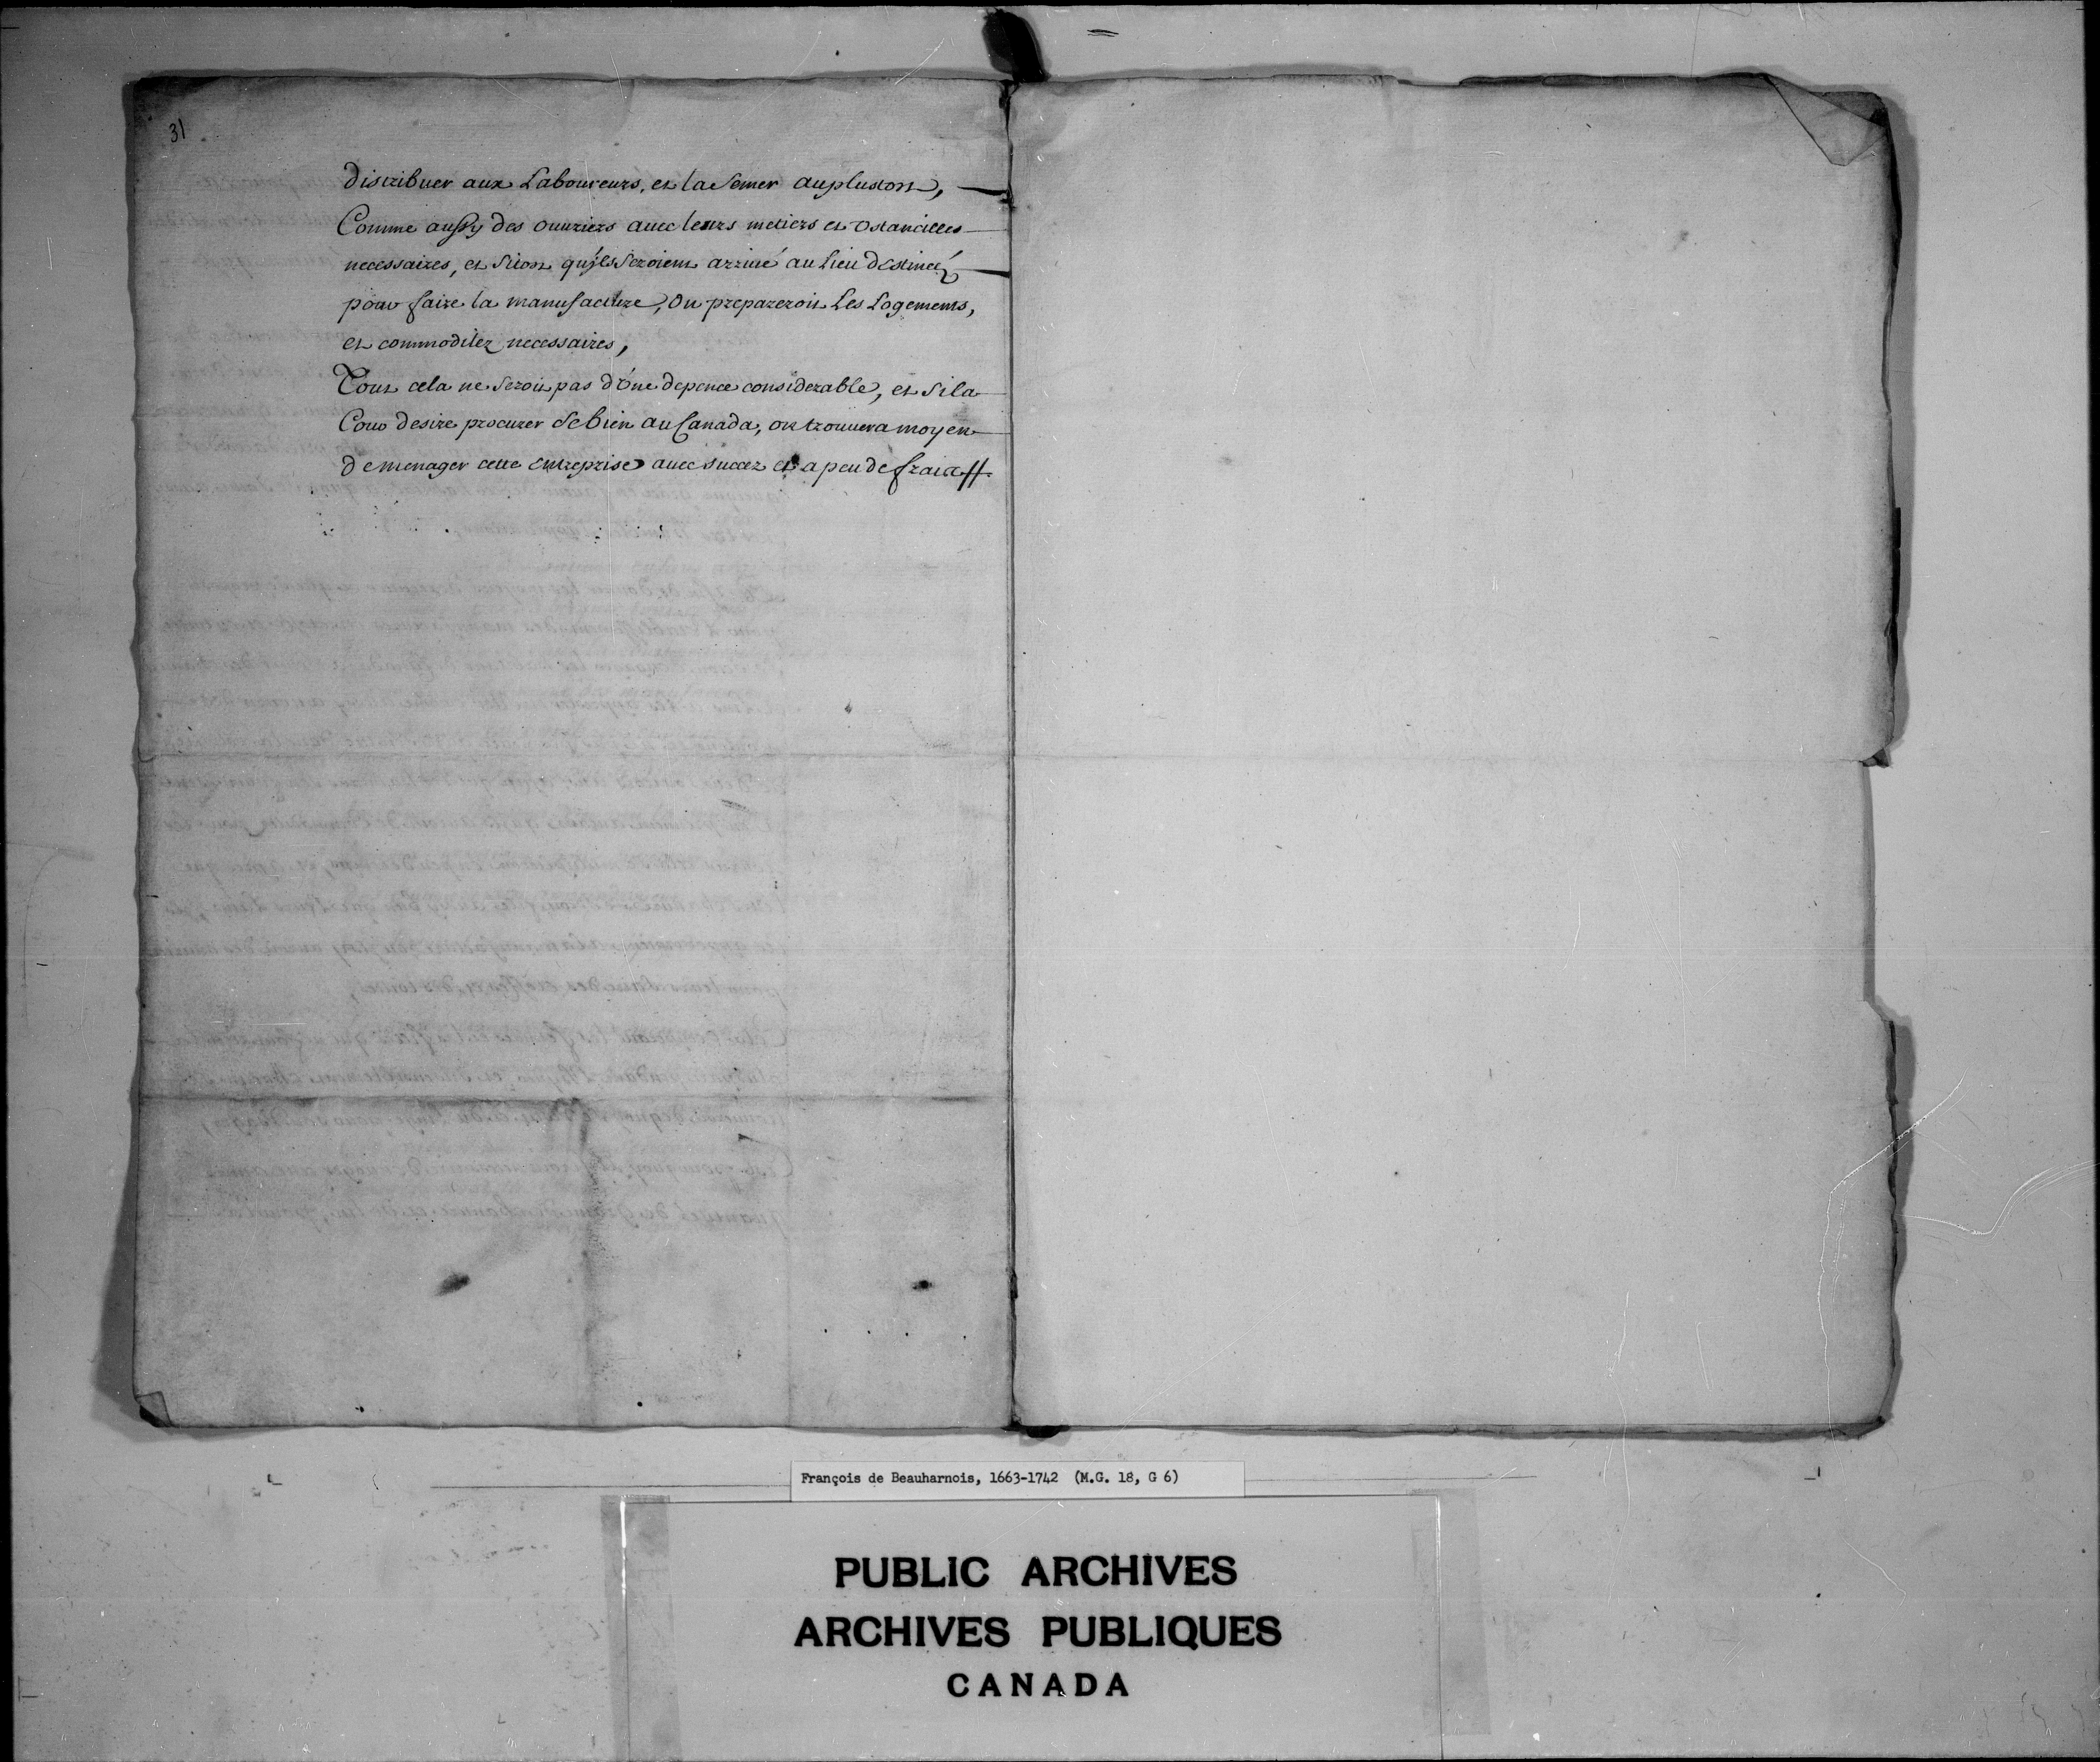 31
distribuer aux Laboureurs, et la Semer auplustost,
Comme aussy des ouuriers auec leurs metiers et ostancilles
necessaires, et sitost qu'jls seroient arriué au Lieu destinéz
pour faire la manufacture, on prepareroit Les Logements,
et commoditez necessaires,
Tout cela ne seroit pas d'óne depence considerable, et si la
Cour desire procurer ce bien au Canada, on trouuera moyen
de menager cette entreprise auec succez et a peu de fraix //.
François de Beauharnois, 1663-1742 (M.G. 18, G 6)
PUBLIC ARCHIVES
ARCHIVES PUBLIQUES
CANADA